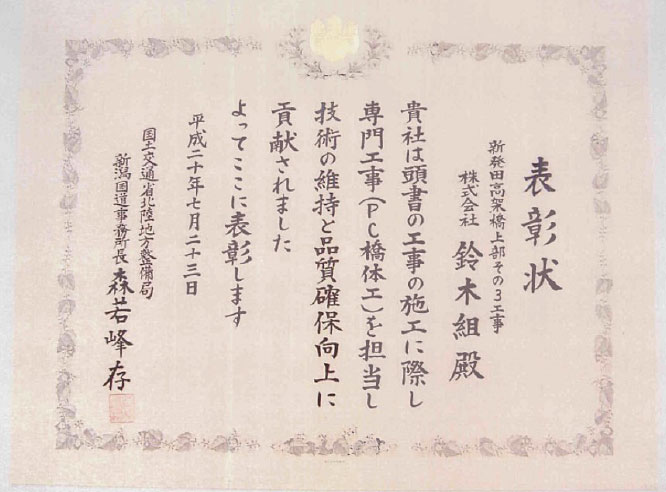 表彰状
新発田高架橋上部その3工事
株式会社 鈴木組殿
貴社は頭書の工事の施工に際し
専門工事(PC橋体工)を担当し
技術の維持と品質確保向上に
貢献されました
よってここに表彰します
平成二十年七月二十三日
国土交通省北陸地方整備局
新潟国道事務所長 森若峰存